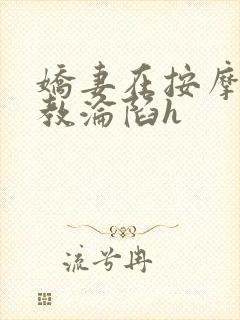 嬌妻在按摩
教淪陷h
流兮冉